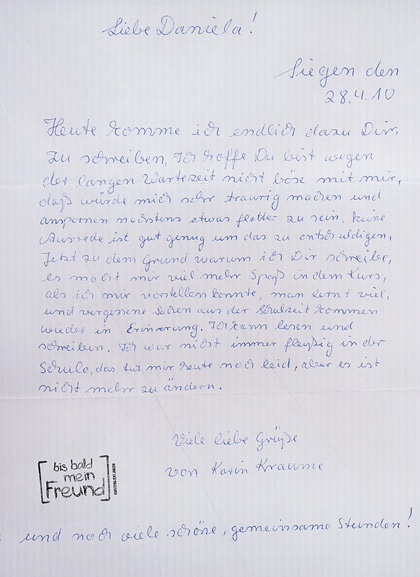 Liebe Daniela!
Siegen den
28.4.10
Heute komme ich endlich dazu Dir,
zu schreiben, Ich hoffe Du bist wegen
der langen Wartezeit nicht böse mit mir,
daß würde mich sehr traurig machen und
anspornen nächstens etwas fletter zu sein. Keine
Ausrede ist gut genug um das zu entschuldigen,
Jetzt zu dem Grund warum ich Dir schreibe,
es macht mir viel mehr Spaß in dem Kurs,
als ich mir vorstellen konnte, man lernt viel,
und vergessene Sachen aus der Schulzeit kommen
wieder in Erinnerung. Ich kann lesen und
schreiben. Ich war nicht immer fleißig in der
Schule, das tut mir heute noch leid, aber es ist
nicht mehr zu ändern.
Viele liebe Grüße
von Karin Kraume
bis bald
mein
Freund
und noch viele schöne, gemeinsame Stunden!